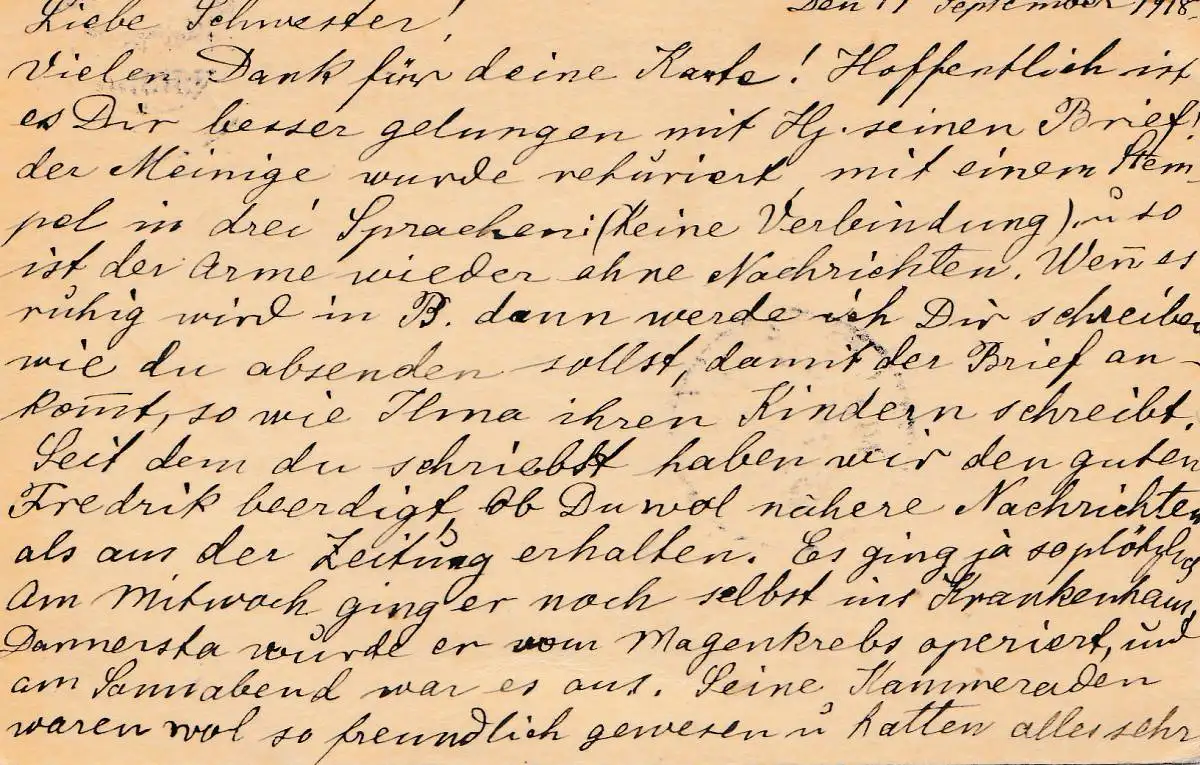 Liebe Schwester! Den 11 September 1918
Vielen Dank für deine Karte! Hoffentlich ist
es Dir besser gelungen mit Hj. seinen Brief!
der Meinige wurde retŭriert, mit einem Stem-
pel in drei Sprachen: (Keine Verbindung), ŭ so
ist der Arme wieder ohne Nachrichten. Wen̄ es
rŭhig wird in B. dann werde ich Dir schreiben
wie du absenden sollst, damit der Brief an-
kom̄t, so wie Ilma ihren Kindern schreibt.
Seit dem du schriebst haben wir den guten
Fredrik beerdigt, Ob Du wol nähere Nachrichten
als aus der Zeitŭng erhalten. Es ging ja so plötzlich
Am Mitwoch ging er noch selbst ins Krankenhaus,
Donnersta wŭrde er vom Magenkrebs operiert, und
am Sonnabend war es aus. Seine Kammeraden
waren wol so freundlich gewesen ŭ hatten alles sehr